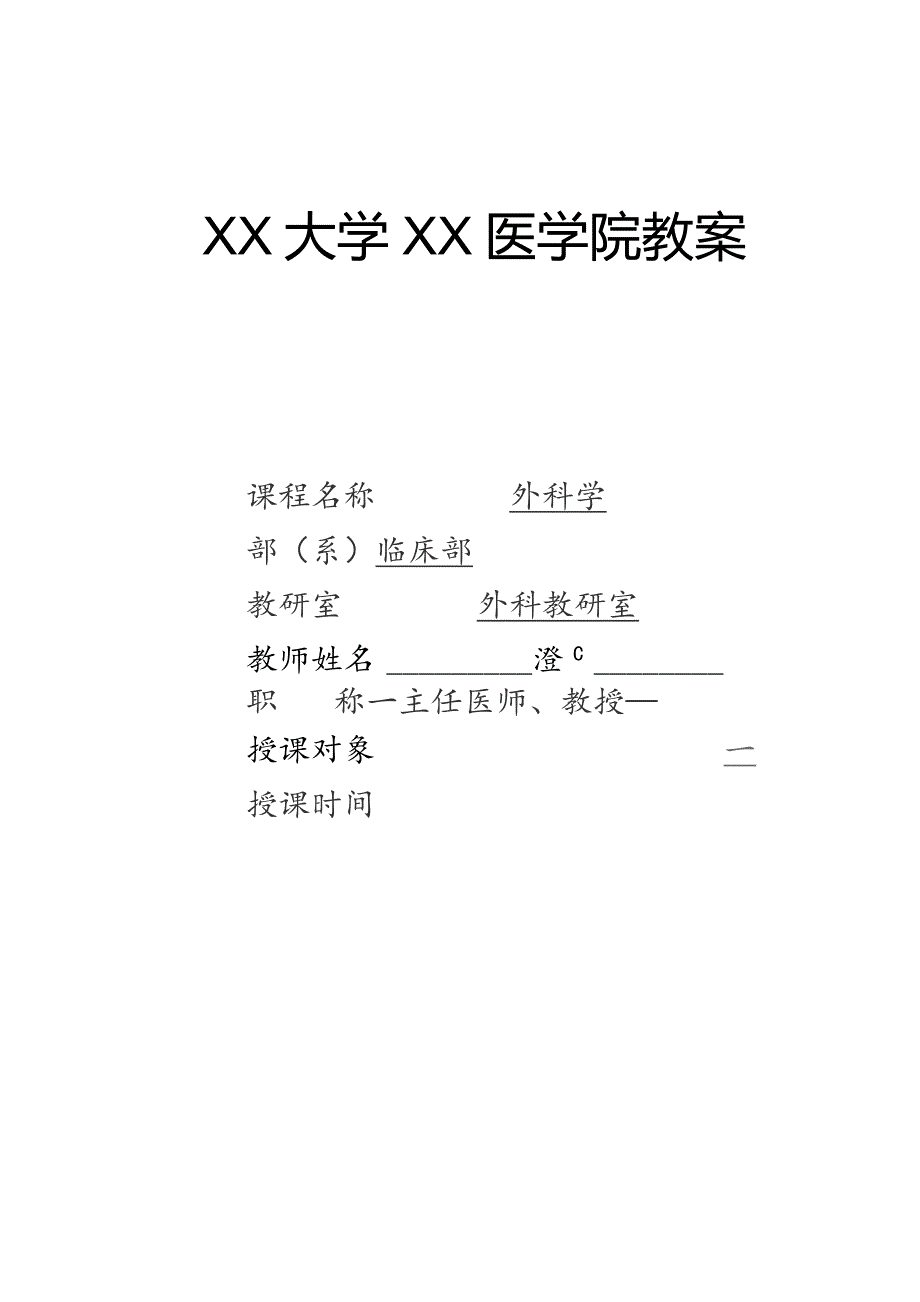 XX大学XX医学院教案
课程名称 外科学
部（系）临床部
教研室 外科教研室
教师姓名 _________澄c ________
职 称一主任医师、教授—
授课对象 一
授课时间